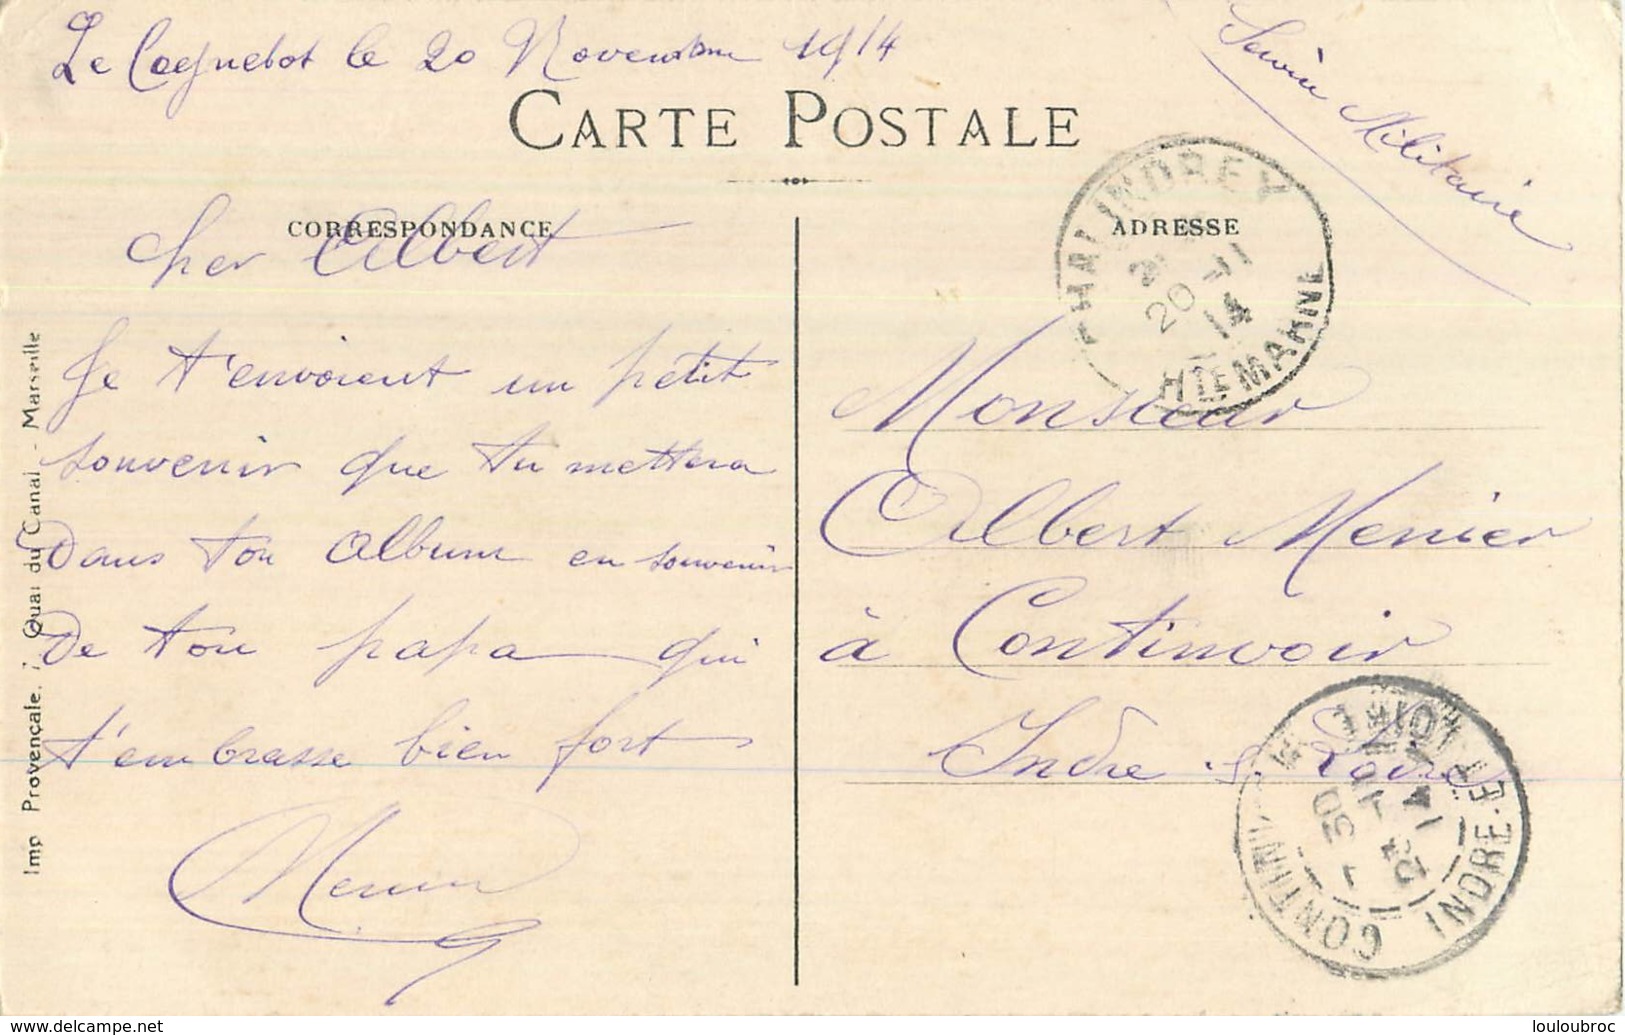 Le Coquelot le 20 Novembre 1914
Service Militaire
CARTE POSTALE
CORRESPONDANCE
ADRESSE
Cher Albert
Je t'envoient un petit
souvenir que tu mettera
dans ton album en souvenir
de ton papa qui
t'embrasse bien fort
Menier
Monsieur
Albert Menier
à Continvoir
Indre s. Loire
CHALINDREY
20 -11
14
HTE MARNE
CONTINVOIR
INDRE-ET-LOIRE
Imp Provençale, 7 Quai du Canal - Marseille
www.delcampe.net
louloubroc